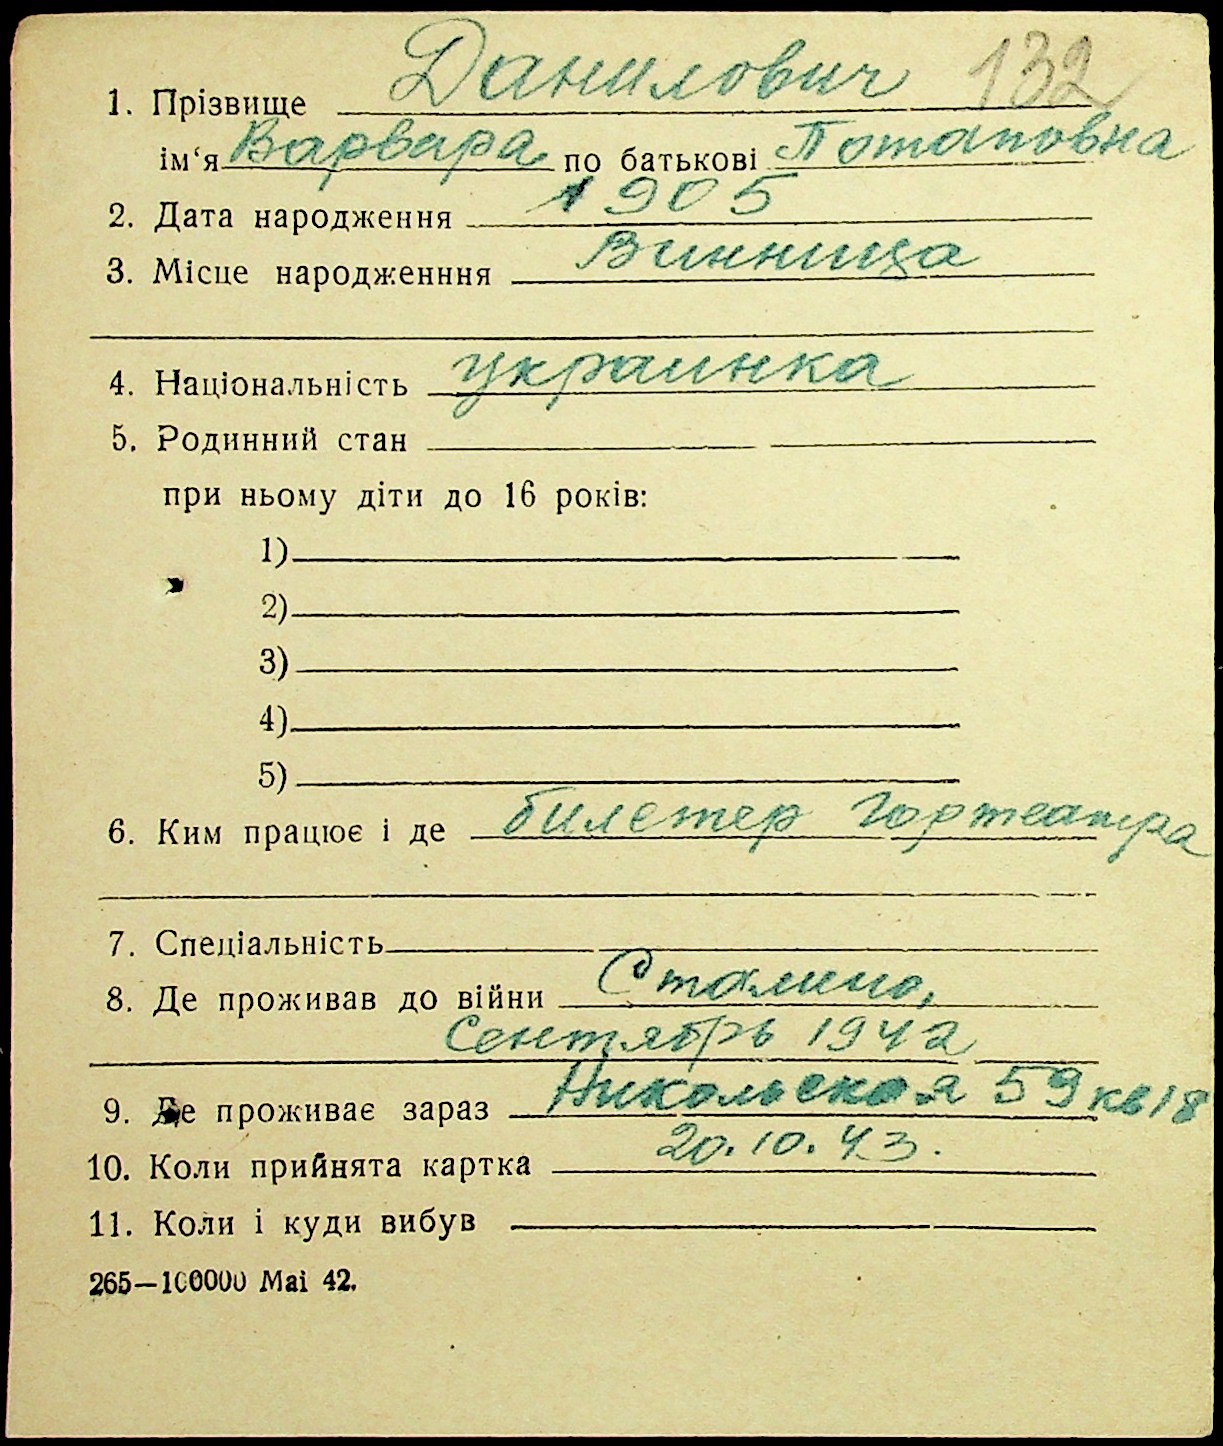 Данилович 132
1. Прізвище
ім‘я Варвара по батькові Потаповна
2. Дата народження 1905
3. Місце народженння Винница
4. Національність украинка
5. Родинний стан
при ньому діти до 16 років:
1)
2)
3)
4)
5)
6. Ким працює і де билетер Гортеатра
7. Спеціальність
8. Де проживав до війни Сталино,
Сентябрь 1942
9. Де проживає зараз Никольская 59 кв 18
10. Коли прийнята картка 20.10.43.
11. Коли і куди вибув
265—100000 Mai 42.